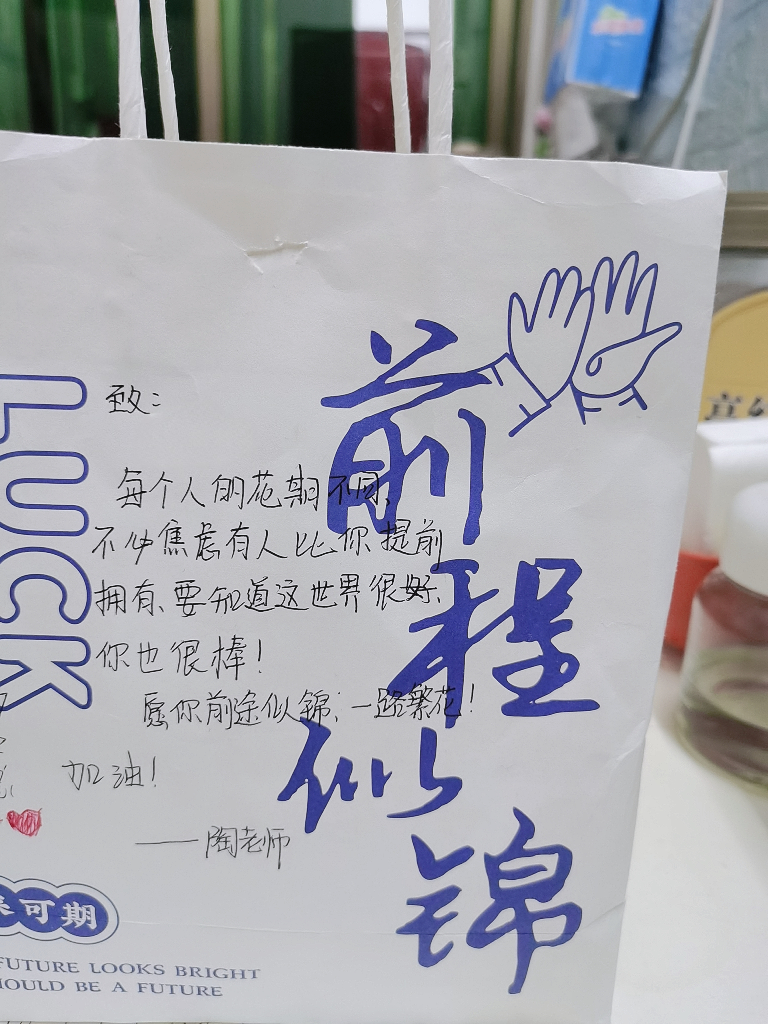 致：
每个人的花期不同、
不必焦虑有人比你提前
拥有、要知道这世界很好、
你也很棒！
愿你前途似锦；一路繁花！
加油！
——陶老师
前程似锦
LUCK
可期
FUTURE LOOKS BRIGHT
BE A FUTURE